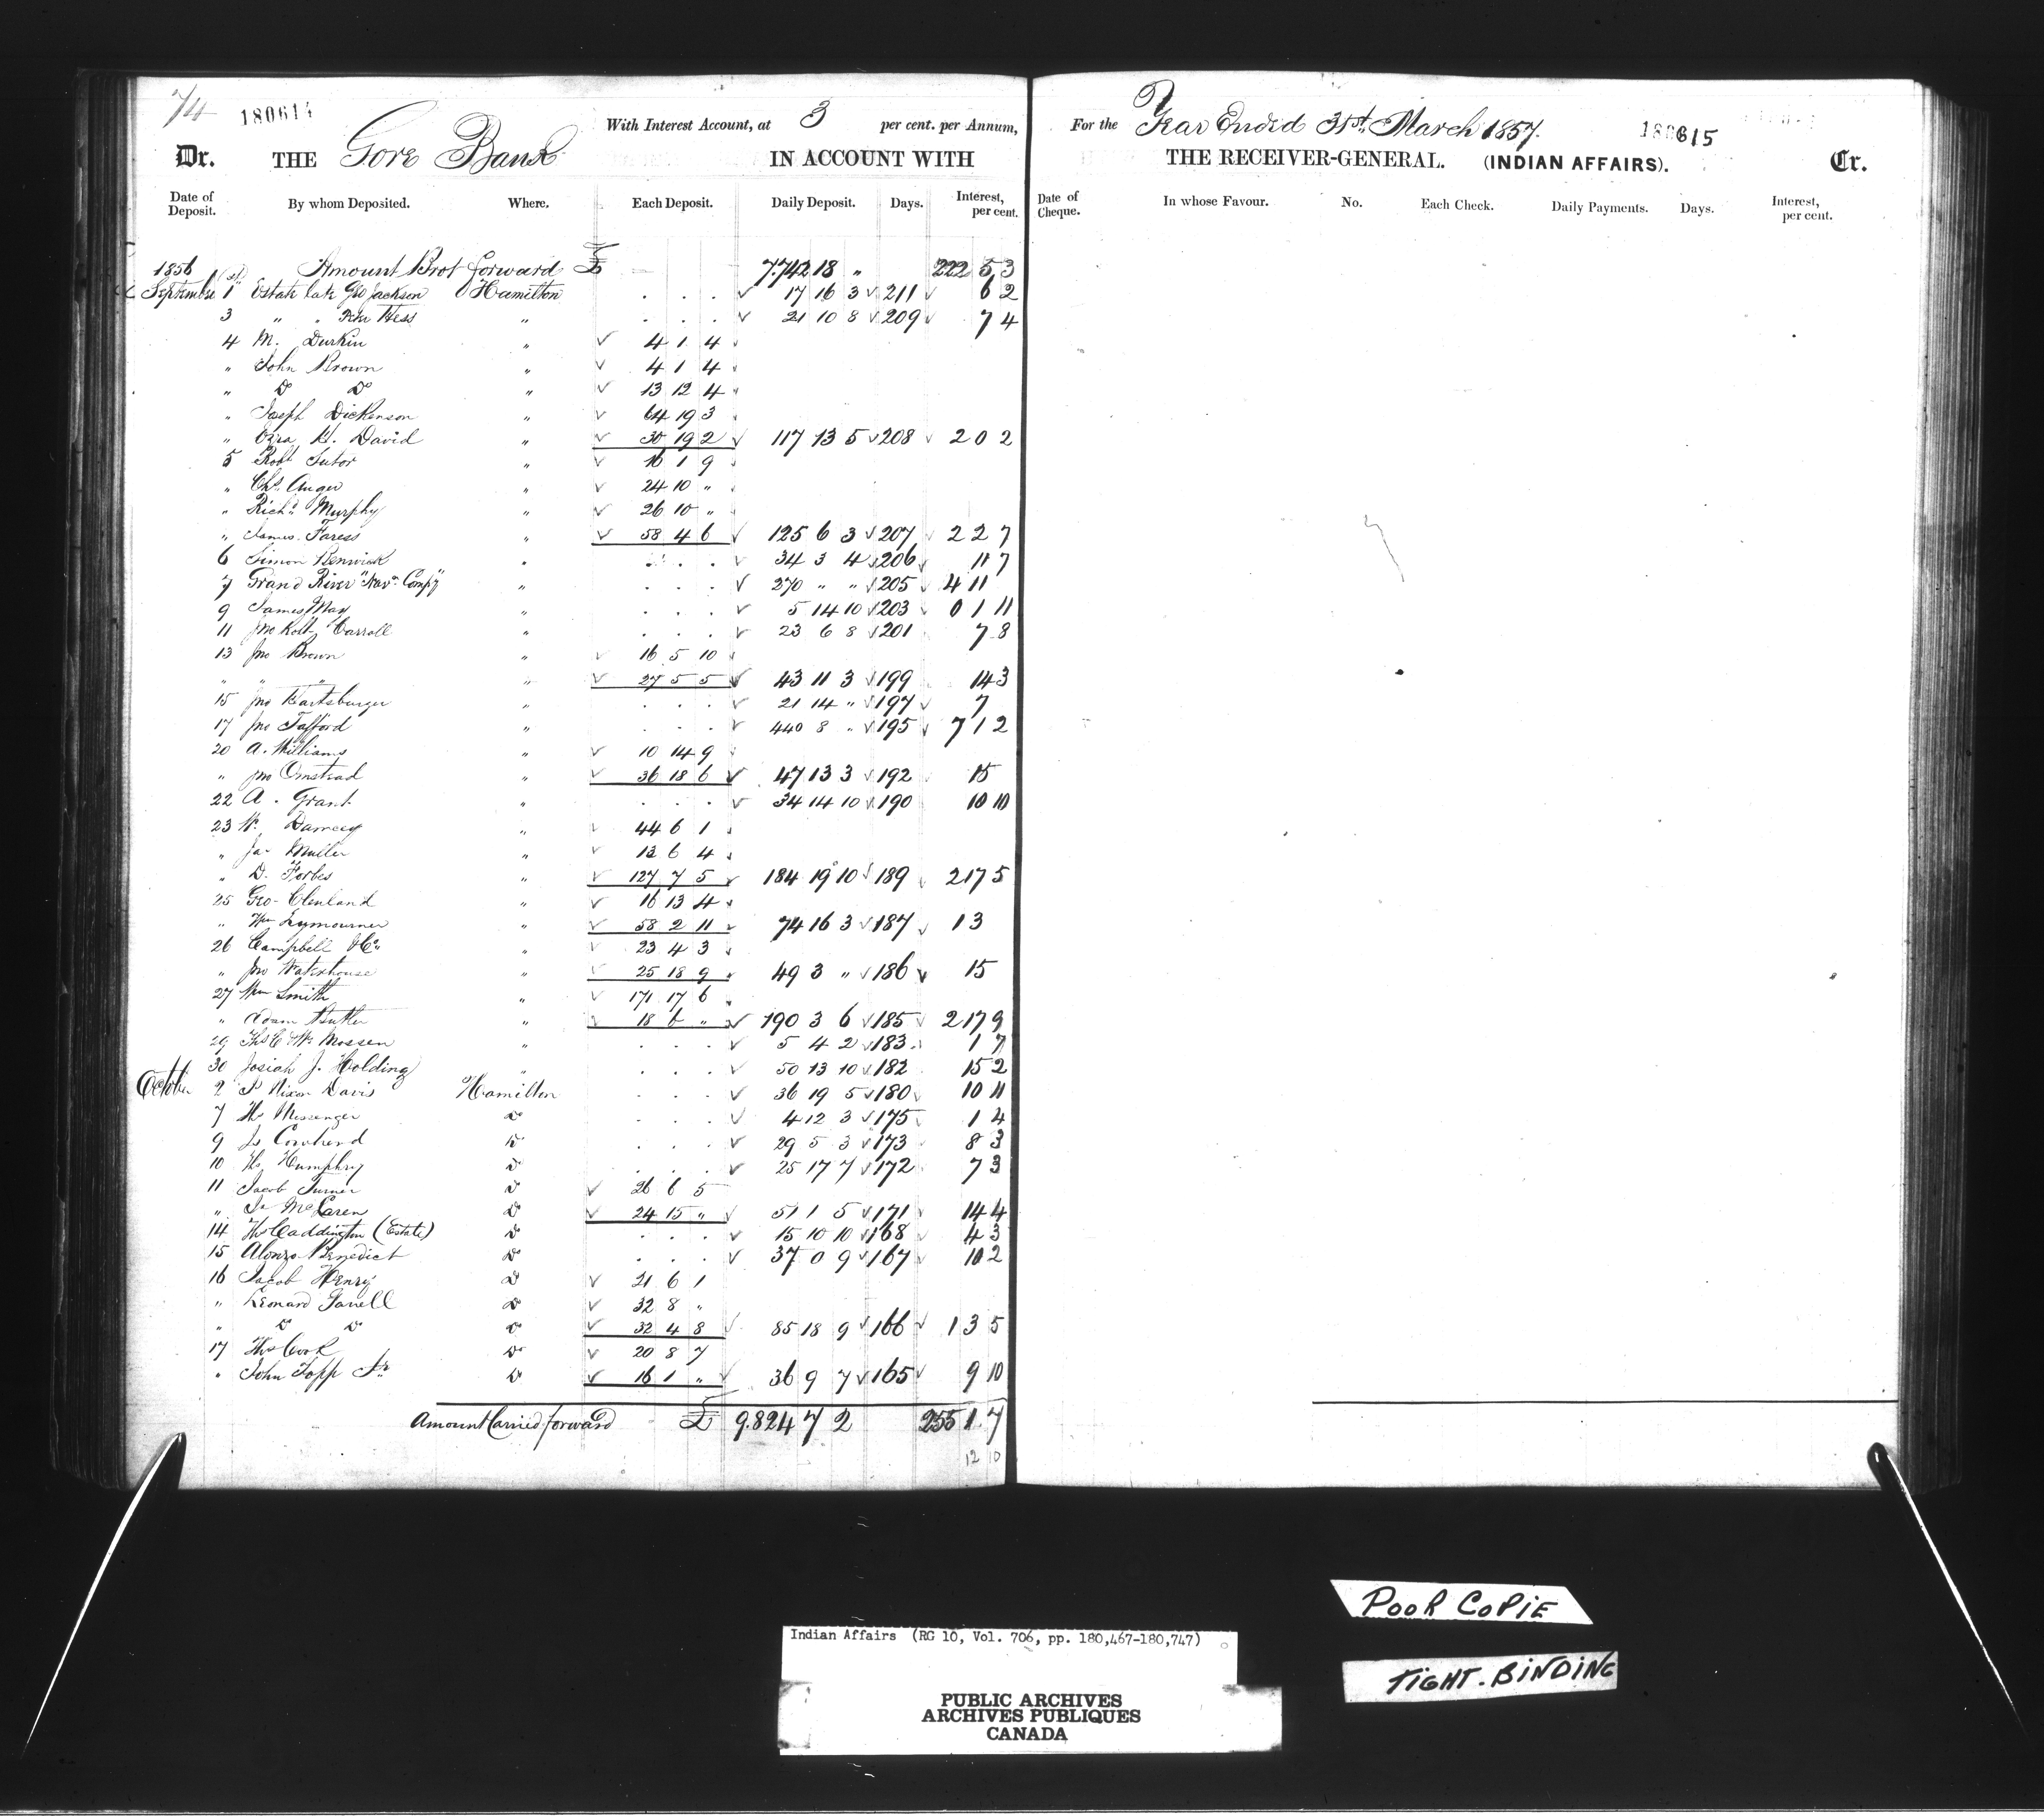 74 180614
With Interest Account, at 3 per cent. per Annum,
Dr. THE Gore Bank IN ACCOUNT WITH
Date of Deposit. By whom Deposited. Where. Each Deposit. Daily Deposit. Days. Interest, per cent.
1856 Amount Brot forward £ 7.742 18 " 222 5 3
September 1st Estate late Geo Jackson Hamilton 17 16 3 211 6 2
3 " " Peter Hess " 21 10 8 209 7 4
4 M. Durkin " 4 1 4
" John Brown " 4 1 4
" Do Do " 13 12 4
" Joseph Dickenson " 64 19 3
" Ezra H. David " 30 19 2 117 13 5 208 2 0 2
5 Robt Sutor " 16 1 9
" Chs Auger " 24 10 "
" Richd Murphy " 26 10 "
" James Faress " 58 4 6 125 6 3 207 2 2 7
6 Simon Renwick " 34 3 4 206 11 7
7 Grand River Navn Compy " 270 " " 205 4 11
9 James May " 5 14 10 203 0 1 11
11 Jno Carroll " 23 6 8 201 7 8
13 Jno Brown " 16 5 10
" " " " 27 5 5 43 11 3 199 14 3
15 Jno Hartsburger " 21 14 " 197 7
17 Jno Tafford " 440 8 " 195 7 1 2
20 A. Williams " 10 14 9
" Jno Omstead " 36 18 6 47 13 3 192 15
22 A. Grant " 34 14 10 190 10 10
23 W. Damcey " 44 6 1
" Jas Muller " 13 6 4
" D. Forbes " 127 7 5 184 19 10 189 2 17 5
25 Geo. Clenland " 16 13 4
" Wm Lymourner " 58 2 11 74 16 3 187 1 3
26 Campbell & Co " 23 4 3
" Jno Waterhouse " 25 18 9 49 3 " 186 15
27 Wm Smith " 171 17 6
" Adam Butler " 18 6 " 190 3 6 185 2 17 9
29 Ths C W. Mossen " 5 4 2 183 1 7
30 Josiah J. Holding " 50 13 10 182 15 2
October 2 Nixon Davis Hamilton 36 19 5 180 10 11
7 Ths Messenger Do 4 12 3 175 1 4
9 Js Cowherd Do 29 5 3 173 8 3
10 Ths Humphry Do 25 17 7 172 7 3
11 Jacob Turner Do 26 6 5
" Js McLaren Do 24 15 " 51 1 5 171 14 4
14 Ths Caddington (Estate) Do 15 10 10 168 4 3
15 Alonzo Benedict Do 37 0 9 167 10 2
16 Jacob Henry Do 21 6 1
" Leonard Farrell Do 32 8 "
" Do Do Do 32 4 8 85 18 9 166 1 3 5
17 Ths Cook Do 20 8 7
" John Topp Jr Do 16 1 " 36 9 7 165 9 10
Amount Carried forward £ 9.824 7 2 255 1 7
12 10
For the Year Ended 31st March 1857. 180615
THE RECEIVER-GENERAL. (INDIAN AFFAIRS). Cr.
Date of Cheque. In whose Favour. No. Each Check. Daily Payments. Days. Interest, per cent.
POOR COPIE
TIGHT. BINDING
Indian Affairs (RG 10, Vol. 706, pp. 180,467-180,747)
PUBLIC ARCHIVES
ARCHIVES PUBLIQUES
CANADA